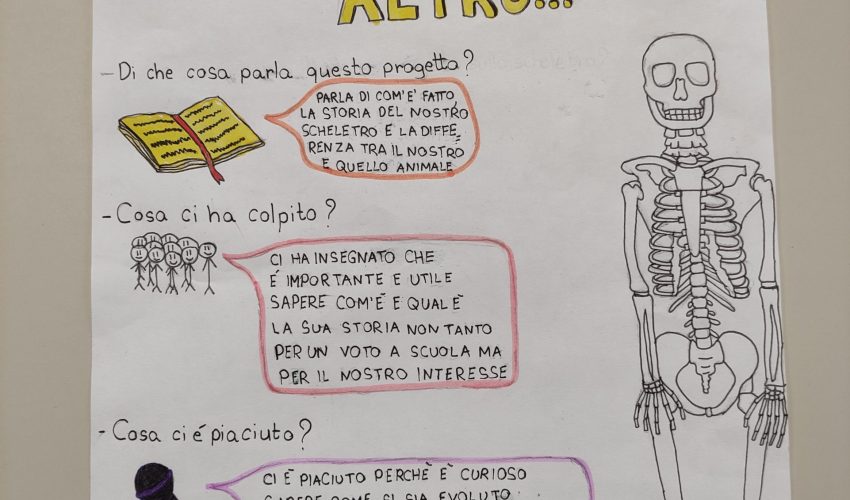 ALTRO...
- Di che cosa parla questo progetto?
PARLA DI COM'E' FATTO,
LA STORIA DEL NOSTRO
SCHELETRO E LA DIFFE_
RENZA TRA IL NOSTRO
E QUELLO ANIMALE
- Cosa ci ha colpito?
CI HA INSEGNATO CHE
É IMPORTANTE E UTILE
SAPERE COM'É E QUAL É
LA SUA STORIA NON TANTO
PER UN VOTO A SCUOLA MA
PER IL NOSTRO INTERESSE
- Cosa ci é piaciuto?
CI É PIACIUTO PERCHÈ È CURIOSO
SAPERE COME SI SIA EVOLUTO